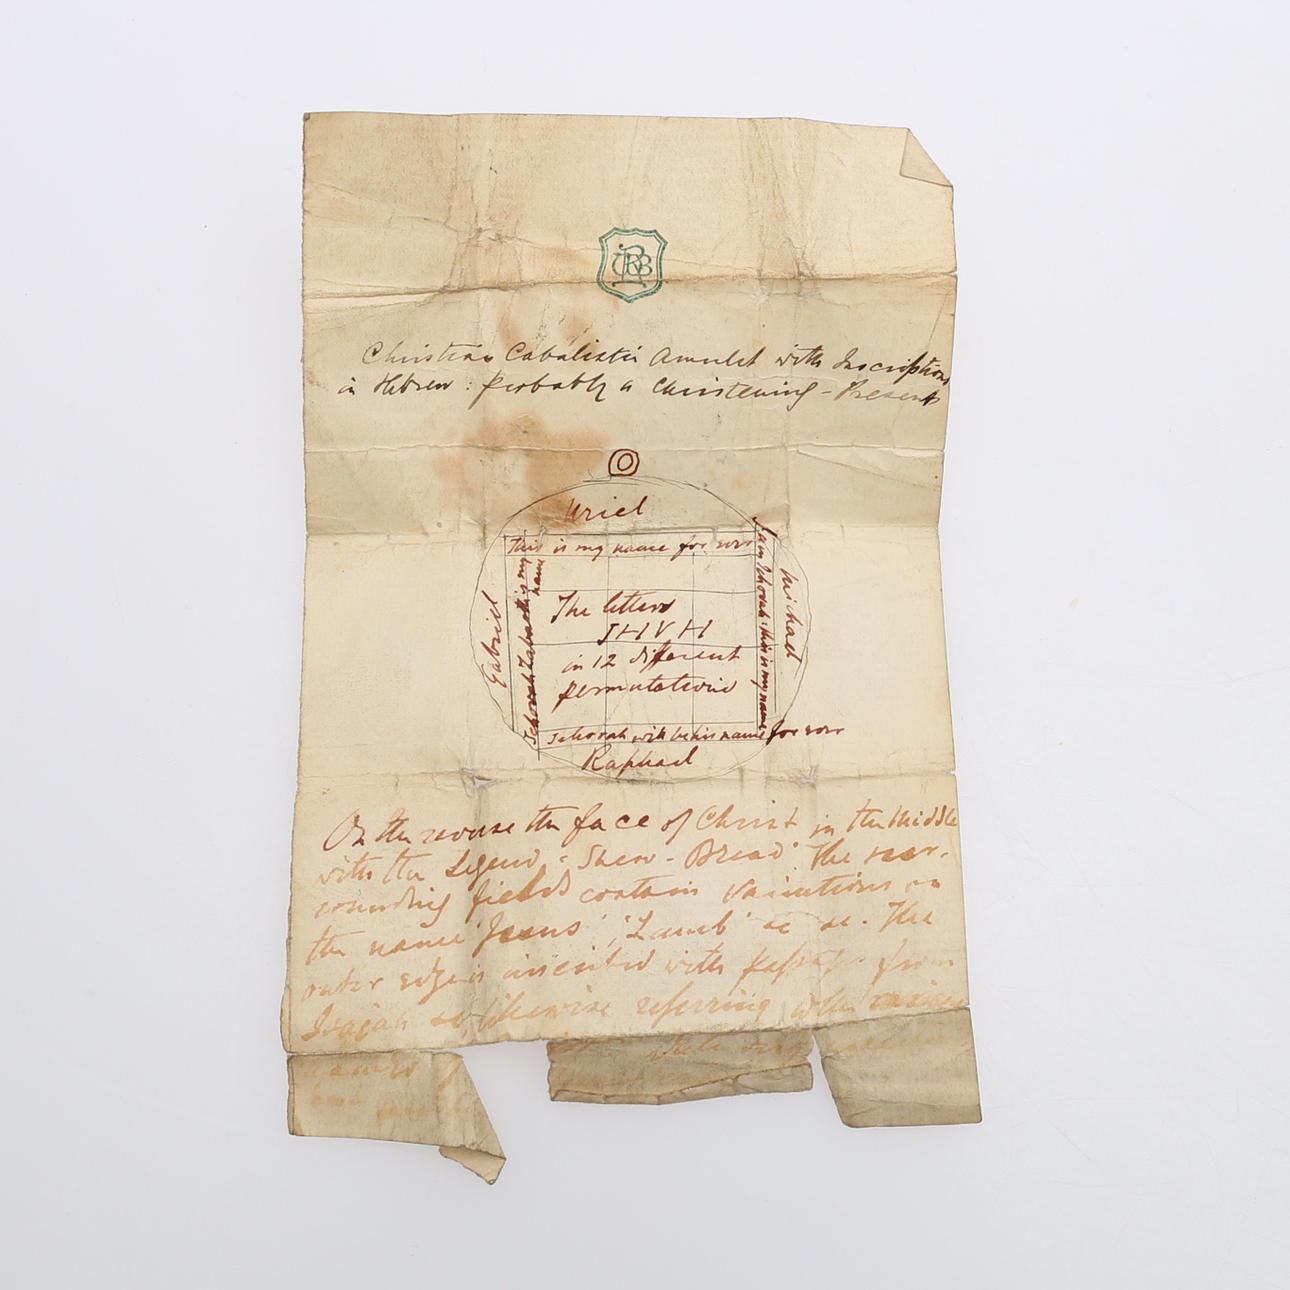 JRBB
Christian Cabalistic Amulet with Inscriptions
in Hebrew : probably a Christening - Present
Uriel
This is my name for ever
Gabriel
Jehovah Zabaoth is my
name
The letters
JHVH
in 12 different
permutations
I am Jehovah : this is my name
Michael
Jehovah will be his name for ever
Raphael
On the reverse the face of Christ in the Middle
with the Legend 'Shew-Bread'. The sur-
rounding fields contain variations on
the name 'Jesus', 'Lamb' &c &c. The
outer edge is inscribed with passages from
Isajah &c, likewise referring to the various
names